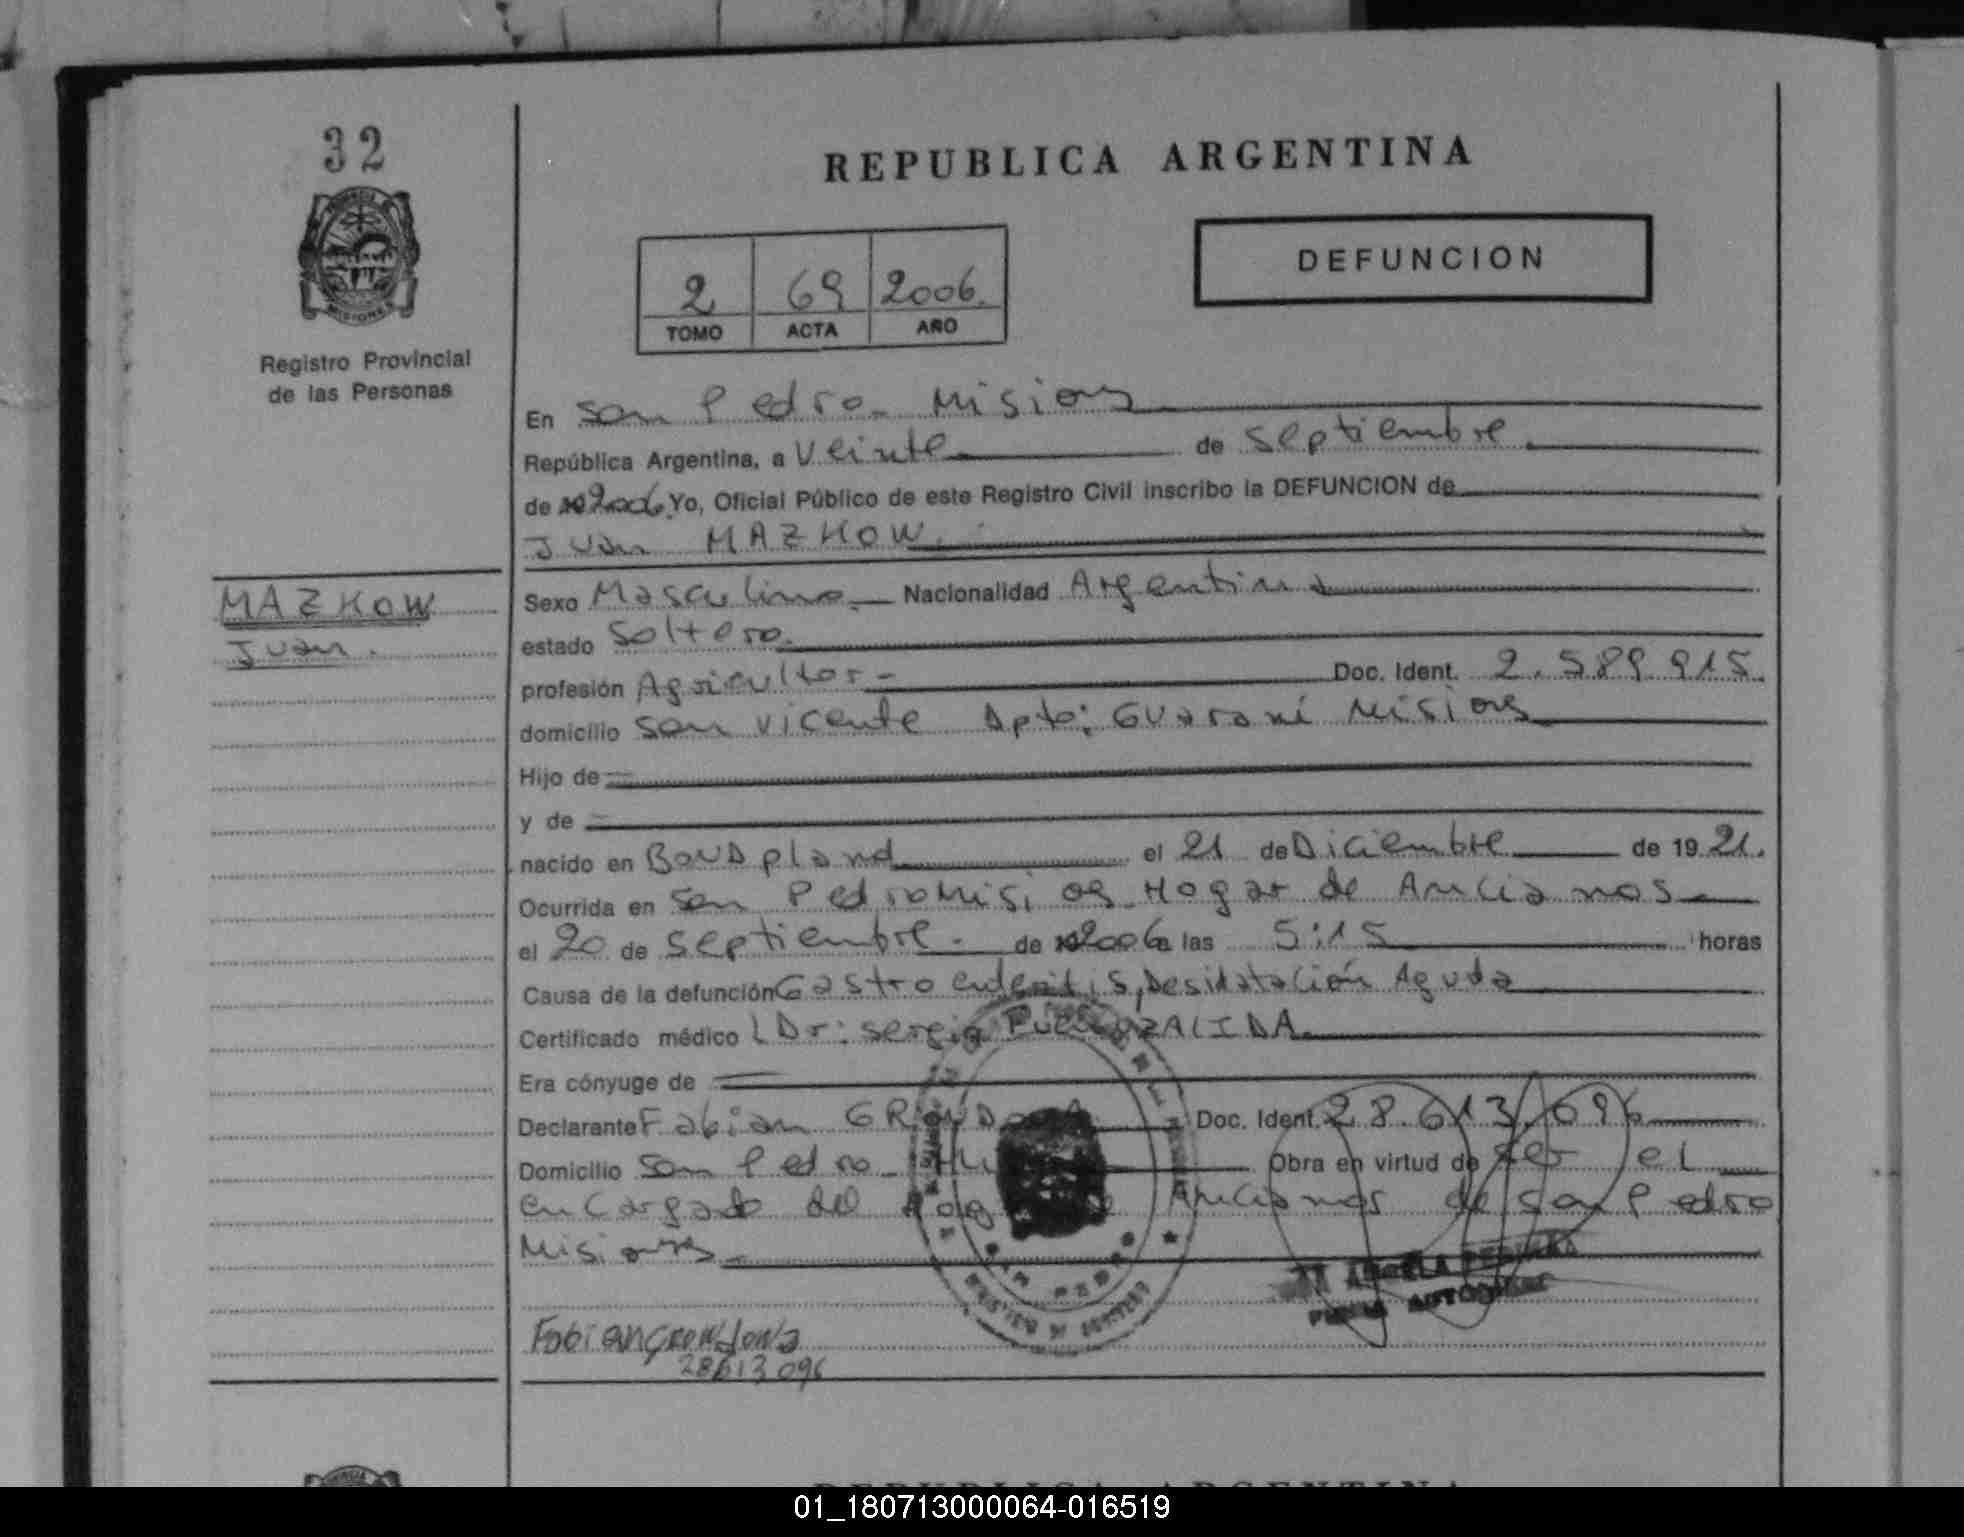 32
REPUBLICA ARGENTINA
DEFUNCION
2 69 2006.
TOMO ACTA AÑO
Registro Provincial
de las Personas
En San Pedro- Misiones
República Argentina, a Veinte de Septiembre.
de 19 2006 Yo, Oficial Público de este Registro Civil inscribo la DEFUNCION de
Juan MAZKOW.
MAZKOW
Juan.
Sexo Masculino. Nacionalidad Argentina
estado Soltero.
profesión Agricultor- Doc. Ident. 2.589.915.
domicilio San Vicente Dpto: Guaraní Misiones
Hijo de
y de
nacido en Bondpland el 21 de Diciembre de 19 21.
Ocurrida en San Pedro Misiones Hogar de Ancianos
el 20 de Septiembre. de 19 2006 a las 5:15 horas
Causa de la defunción Gastroenteritis, Desidatación Aguda
Certificado médico Dr: Sergio FUENZALIDA.
Era cónyuge de
Declarante Fabian GRONDONA Doc. Ident. 28.613.096
Domicilio San Pedro- Obra en virtud de ser el
encargado del Hogar de Ancianos de San Pedro
Misiones-
SAN PEDRO
MINISTERIO DE GOBIERNO
Fabian Grondona
28613096
REPUBLICA ARGENTINA
01_180713000064-016519